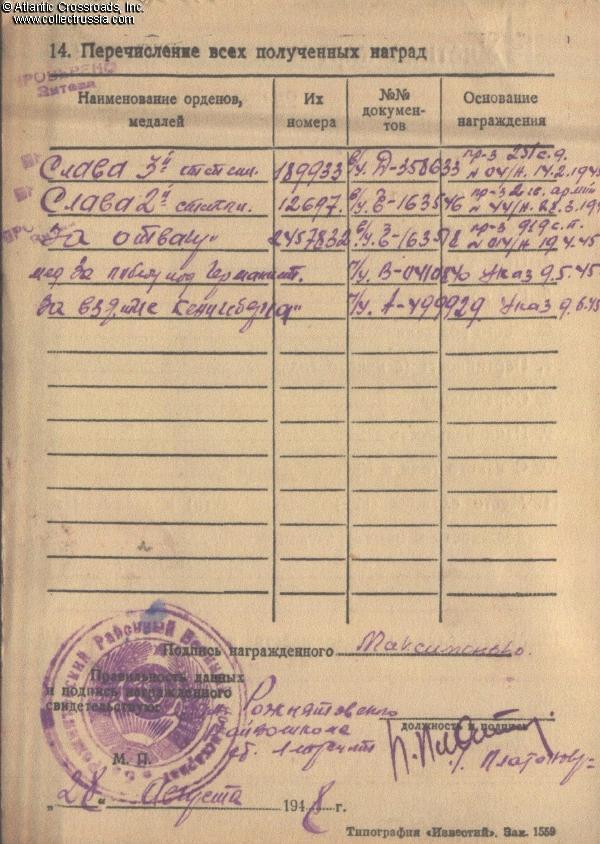 © Atlantic Crossroads, Inc.
www.collectrussia.com
14. Перечисление всех полученных наград
ПРОВЕРЕНО
Наименование орденов, медалей
Их номера
№№ документов
Основание награждения
Слава 3й степени. 189933 о/у. Д-358633 пр-з 251 с.д. № 04/н. 14.2.194
Слава 2й степени. 12697. о/у. Е-163546 пр-з 2 гв. армии № 44/н. 28.3.194
"За отвагу" 2457832 Е-163 пр-з 919 с.п. № 014/н 19.4.45
мед За победу над Германией. В-041 Указ 9.5.45
За взятие Кенигсберга" А-499929 Указ 9.6.45
Подпись награжденного
Правильность данных
и подпись награжденного
свидетельствую:
Рожнятовского
должность и подпись
М. П.
Платонов
„28" Августа 1948 г.
Типография «Известий». Зак. 1559